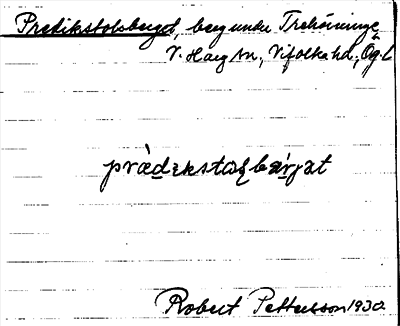 Predikstolsberget, berg under Trehörninge
V. Harg sn, Vifolka hd, Ög. l
prèdɩkstωɭbærjət
Robert Pettersson 1930